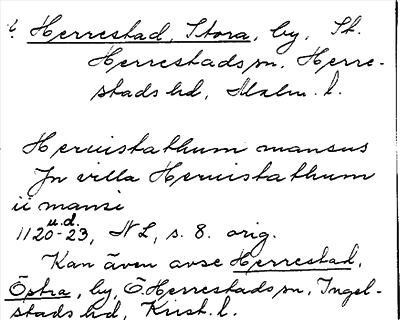 Herrestad, Stora, by, St.
Herrestads sn, Herre-
stads hd, Malm. l.
Heruistathum mansus
Jn villa Heruistathum
ii mansi
u.d.
1120-23, NL, s. 8. orig.
Kan även avse Herrestad,
Östra, by, Ö. Herrestads sn, Ingel-
stads hd, Krist. l.